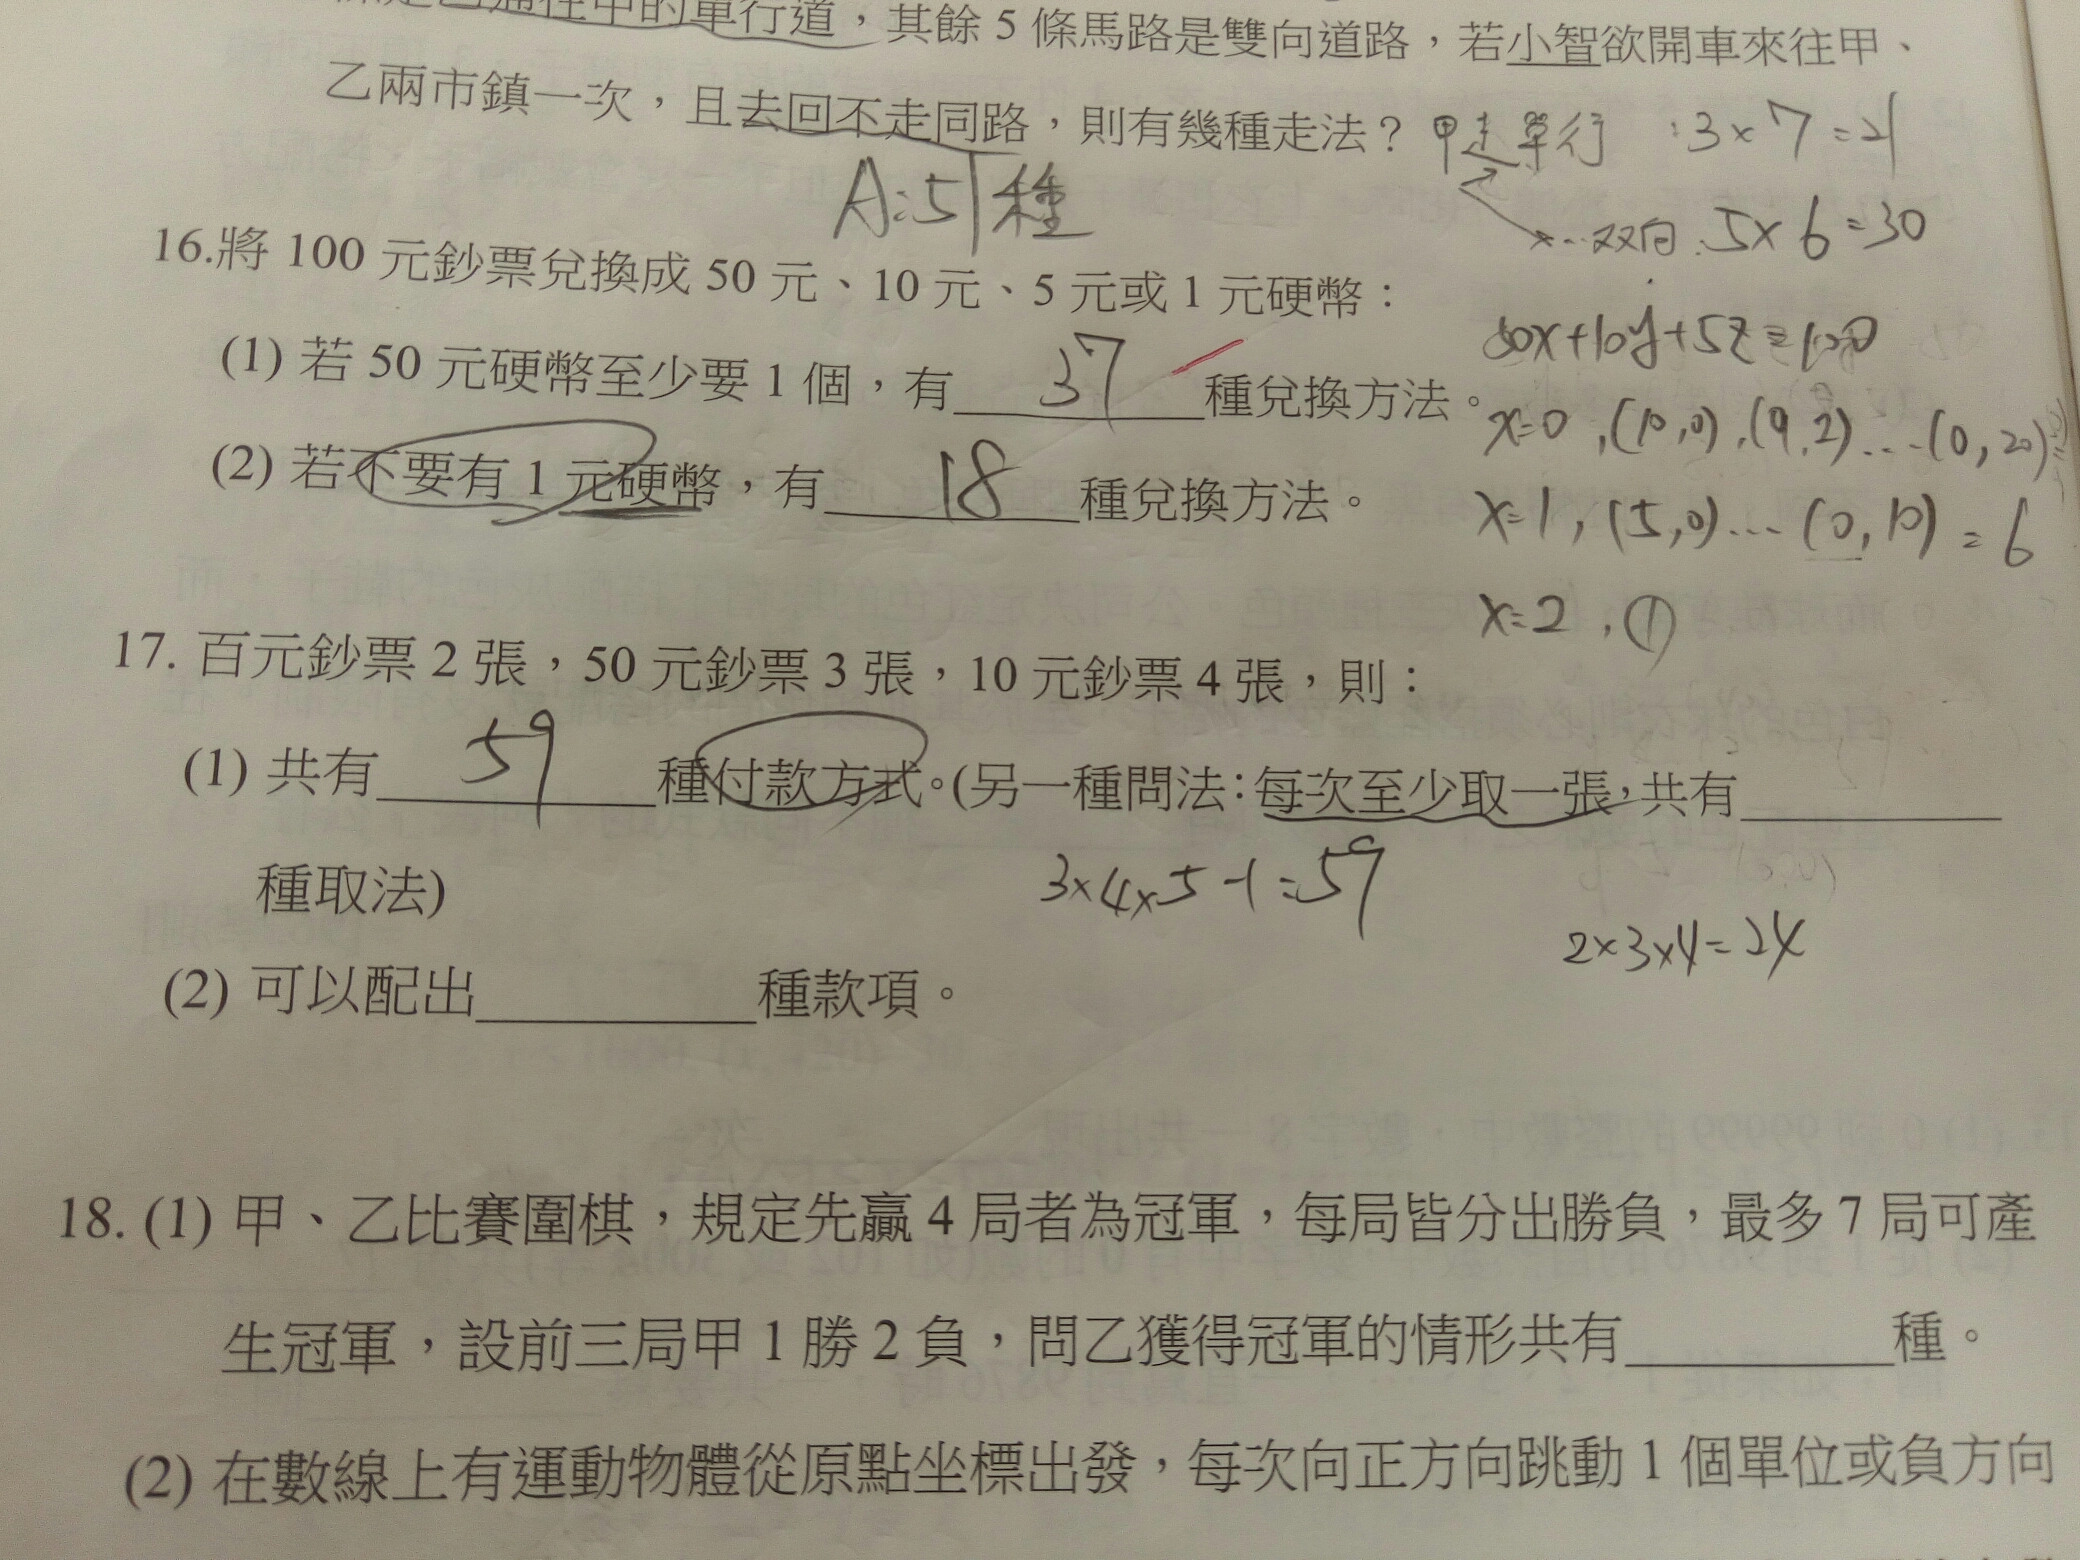 乙通往甲的單行道，其餘 5 條馬路是雙向道路，若小智欲開車來往甲、
乙兩市鎮一次，且去回不走同路，則有幾種走法？ 甲走單行 : 3×7=21
A:51種
双向 : 5×6=30
16.將 100 元鈔票兌換成 50 元、10 元、5 元或 1 元硬幣：
50x+10y+5z=100
(1) 若 50 元硬幣至少要 1 個，有 37 種兌換方法。
x=0 , (10,0) , (9,2) ... (0,20)
(2) 若不要有 1 元硬幣，有 18 種兌換方法。
x=1 , (5,0) ... (0,10) = 6
x=2 , ①
17. 百元鈔票 2 張，50 元鈔票 3 張，10 元鈔票 4 張，則：
(1) 共有 59 種付款方式。(另一種問法：每次至少取一張，共有
種取法)
3×4×5-1=59
2×3×4=24
(2) 可以配出 種款項。
18. (1) 甲、乙比賽圍棋，規定先贏 4 局者為冠軍，每局皆分出勝負，最多 7 局可產
生冠軍，設前三局甲 1 勝 2 負，問乙獲得冠軍的情形共有 種。
(2) 在數線上有運動物體從原點坐標出發，每次向正方向跳動 1 個單位或負方向